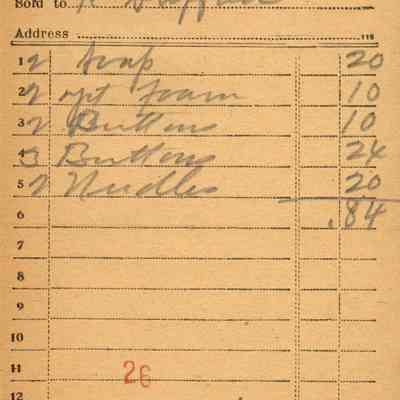 Sold to
Address
1 2 Soap 20
2 2 opt foam 10
3 2 Buttons 10
4 3 Buttons 24
5 2 Needles 20
6 .84
7
8
9
10
11 26
12